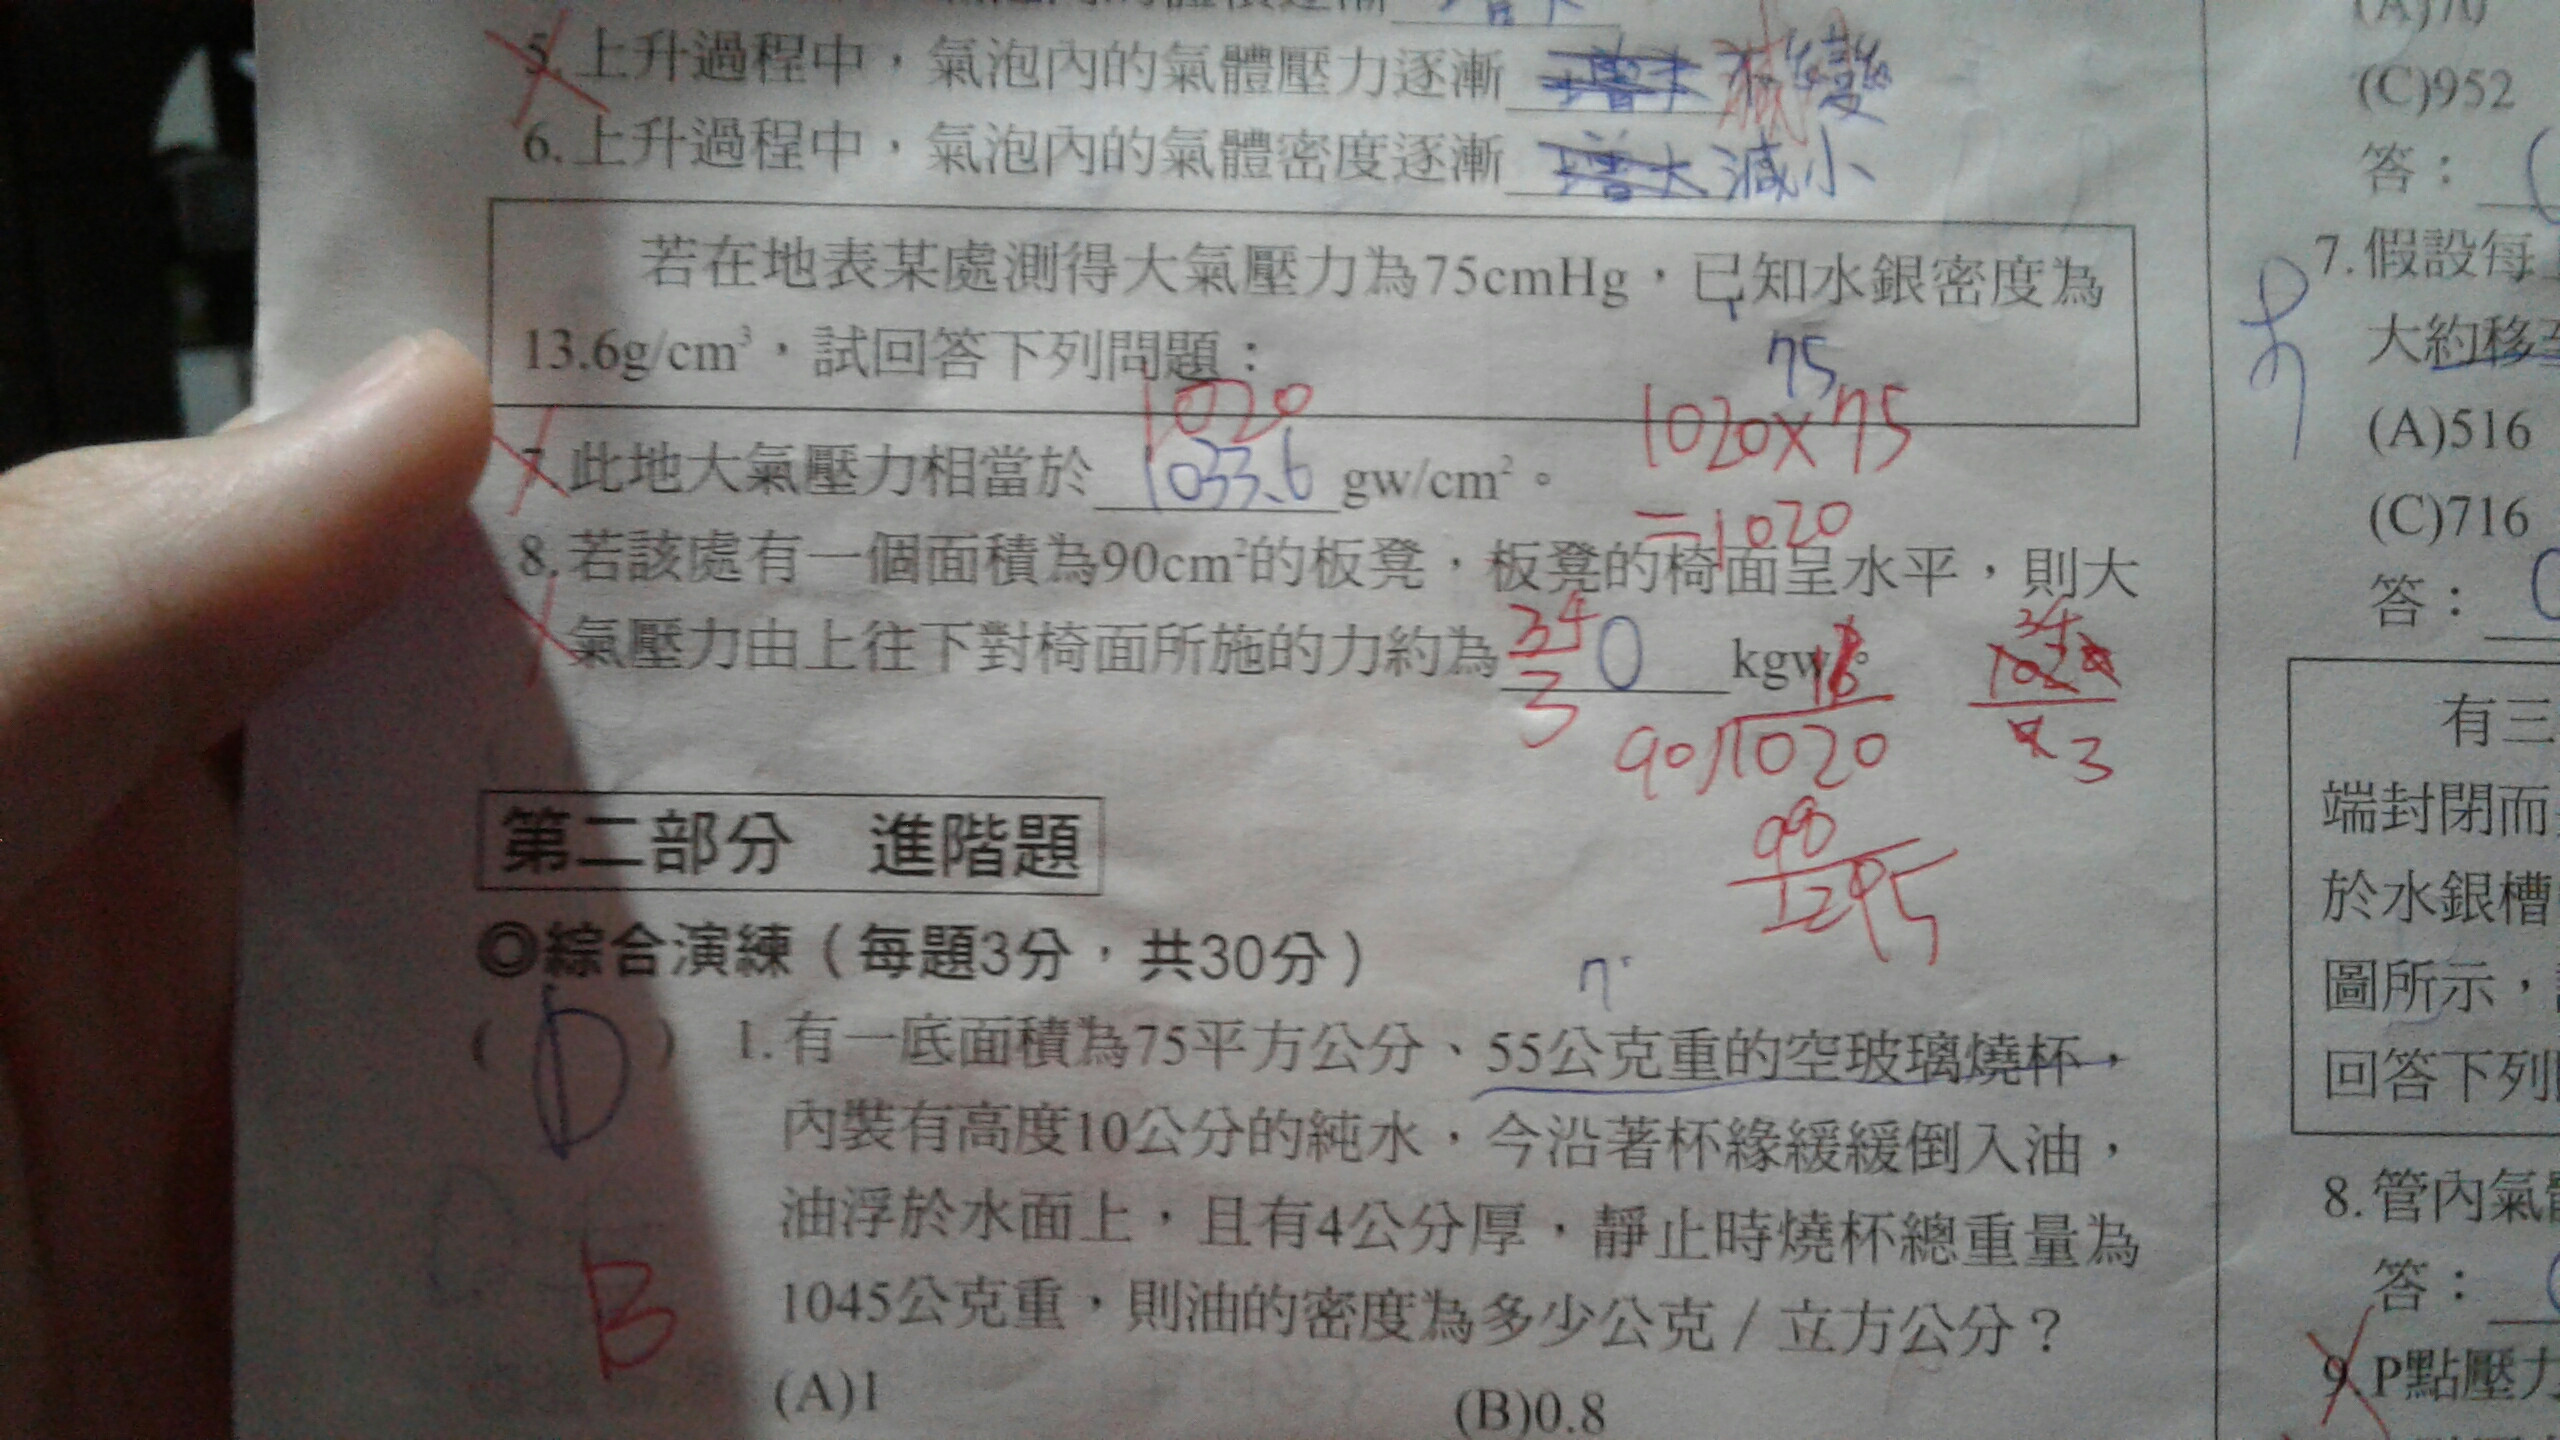 5.上升過程中，氣泡內的氣體壓力逐漸 減
6.上升過程中，氣泡內的氣體密度逐漸 增大 減小
若在地表某處測得大氣壓力為75cmHg，已知水銀密度為
13.6g/cm³，試回答下列問題：
75
1020
1020×75
7.此地大氣壓力相當於 1033.6 gw/cm²。
=1020
8.若該處有一個面積為90cm²的板凳，板凳的椅面呈水平，則大
氣壓力由上往下對椅面所施的力約為 34/3 0 kgw。
34
1020
3
90 1020
90
12
第二部分 進階題
◎綜合演練（每題3分，共30分）
( D ) 1.有一底面積為75平方公分、55公克重的空玻璃燒杯，
內裝有高度10公分的純水，今沿著杯緣緩緩倒入油，
油浮於水面上，且有4公分厚，靜止時燒杯總重量為
B
1045公克重，則油的密度為多少公克／立方公分？
(A)1 (B)0.8
(A)70
(C)952
答：
7.假設每
大約移至
(A)516
(C)716
答：
有三
端封閉而
於水銀槽
圖所示，
回答下列
8.管內氣
答：
9.P點壓力